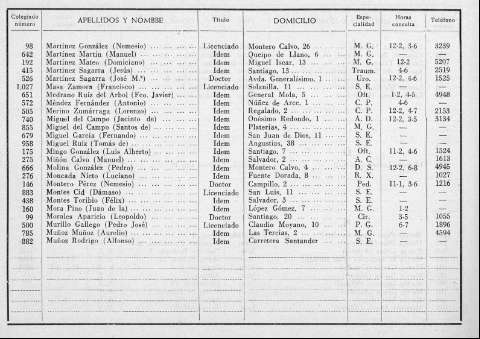 Colegiado número APELLIDOS Y NOMBRE Título DOMICILIO Especialidad Horas consulta Teléfono
98 Martínez González (Nemesio) Licenciado Montero Calvo, 26 M. G. 12-2, 3-6 3289
642 Martínez Martín (Manuel) Idem Queipo de Llano, 6 M. G. — —
192 Martínez Mateo (Domiciano) Idem Miguel Iscar, 13 M. G. 12-2 5207
415 Martínez Sagarra (Jesús) Idem Santiago, 13 Traum. 4-6 2519
526 Martínez Sagarra (José M.ª) Doctor Avda. Generalísimo, 1 Uro. 12-2, 4-6 1525
1.027 Masa Zamora (Francisco) Licenciado Solanilla, 11 S. E. — —
651 Medrano Ruiz del Arbol (Fco. Javier) Idem General Mola, 5 Oft. 1-2, 4-5 4948
572 Méndez Fernández (Antonio) Idem Núñez de Arce, 1 C. P. 4-6 —
505 Merino Zumárraga (Lorenzo) Idem Regalado, 2 C. P. 12-2, 4-7 2153
740 Miguel del Campo (Jacinto de) Idem Onésimo Redondo, 1 A. D. 12-2, 3-5 3134
855 Miguel del Campo (Santos de) Idem Platerías, 4 M. G. — —
679 Miguel García (Fernando) Idem San Juan de Dios, 11 S. E. — —
958 Miguel Ruiz (Tomás de) Idem Angustias, 38 S. E. — —
175 Mingo González (Luis Alberto) Idem Santiago, 7 Oft. 11-2, 4-6 1324
273 Miñón Calvo (Manuel) Idem Salvador, 2 A. C. 1613
666 Molina González (Pedro) Idem Montero Calvo, 4 D. S. 12-2, 6-8 4945
276 Moncada Nieto (Luciano) Idem Fuente Dorada, 8 R. X. — 1027
146 Montero Pérez (Nemesio) Doctor Campillo, 2 Ped. 11-1, 3-6 1216
883 Montes Cid (Dámaso) Licenciado San Luis, 11 S. E. — —
438 Montes Toribio (Félix) Idem Salvador, 3 S. E. — —
160 Mora Pino (Juan de la) Idem López Gómez, 7 M. G. 1-2 —
99 Morales Aparicio (Leopoldo) Doctor Santiago, 20 Cir. 3-5 1055
500 Murillo Gallego (Pedro José) Licenciado Claudio Moyano, 10 P. G. 6-7 1896
785 Muñoz Muñoz (Aurelio) Idem Las Tercias, 2 M. G. — 4394
882 Muñoz Rodrigo (Alfonso) Idem Carretera Santander S. E.